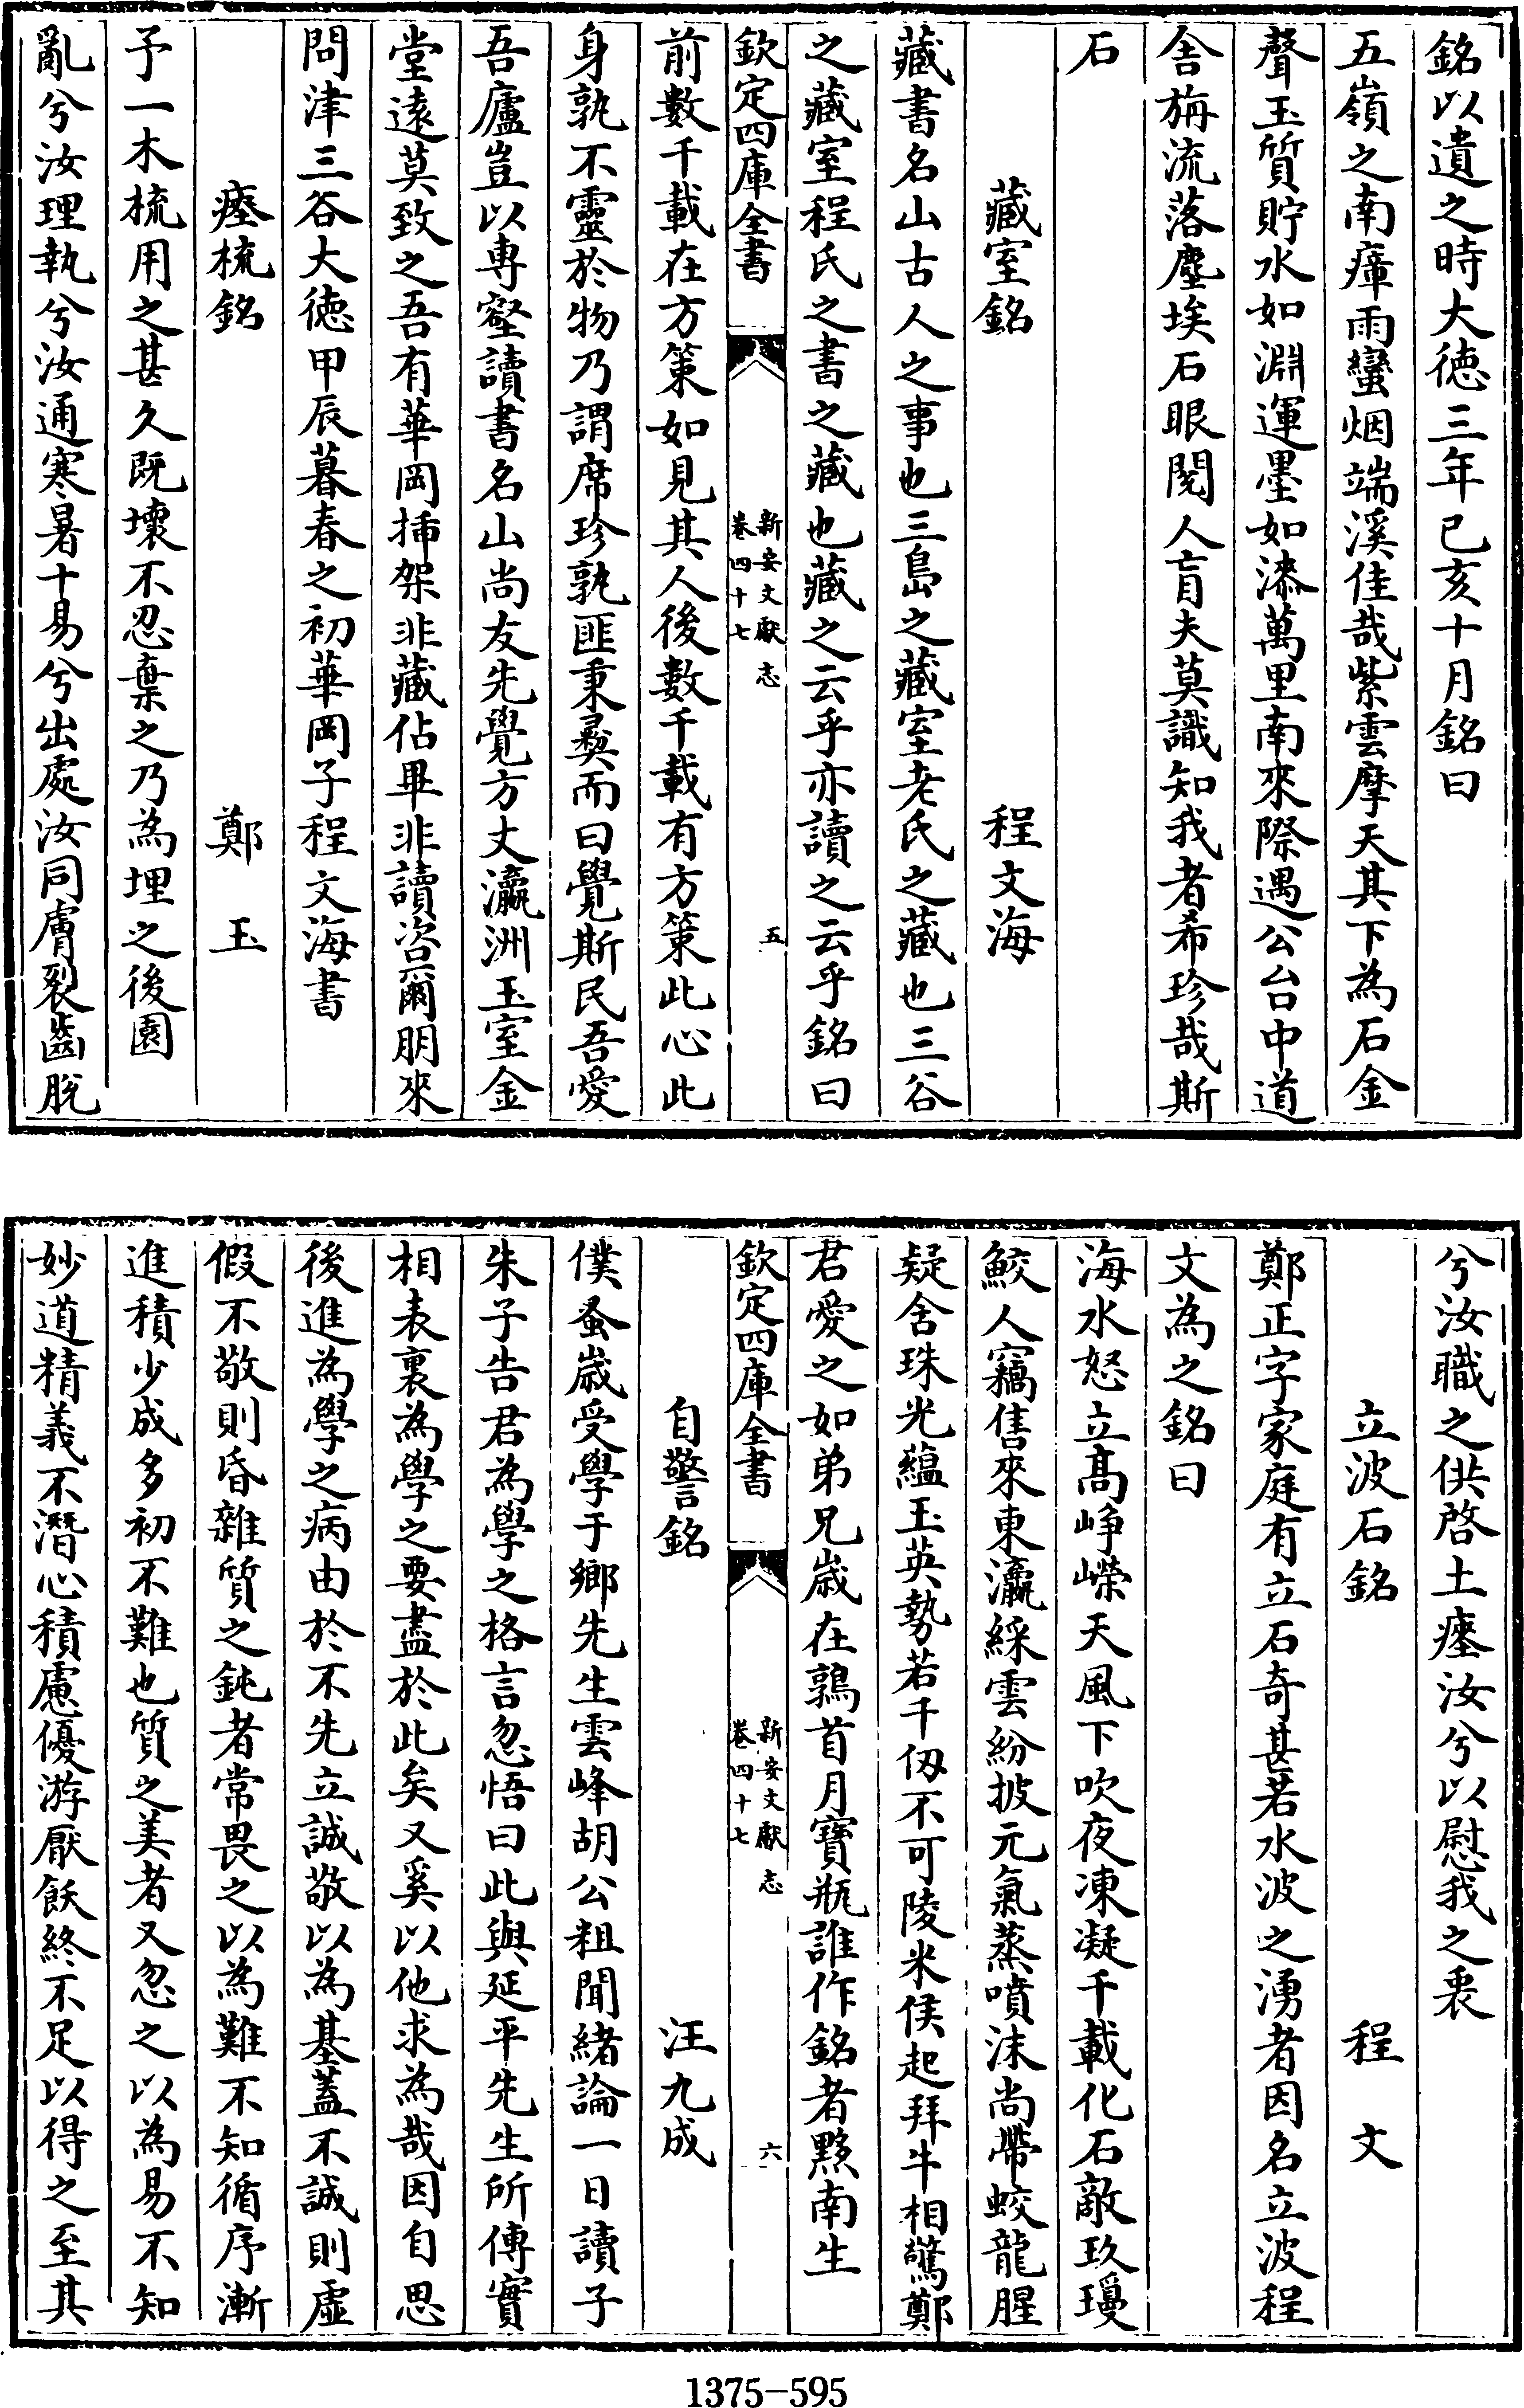 銘以遺之時大徳三年己亥十月銘曰
五嶺之南瘴雨蠻烟端溪佳哉紫雲摩天其下為石金
聲玉質貯水如淵運墨如漆萬里南來際遇公台中道
舎旃流落塵埃石眼閱人盲夫莫識知我者希珍哉斯
石
藏室銘 程文海
藏書名山古人之事也三島之藏室老氏之藏也三谷
之藏室程氏之書之藏也藏之云乎亦讀之云乎銘曰
欽定四庫全書 新安文獻志 卷四十七 五
前數千載在方策如見其人後數千載有方策此心此
身孰不靈於物乃謂席珍孰匪秉彛而曰覺斯民吾愛
吾廬豈以專壑讀書名山尚友先覺方丈瀛洲玉室金
堂遠莫致之吾有華岡揷架非藏佔畢非讀咨爾朋來
問津三谷大徳甲辰暮春之初華岡子程文海書
瘞梳銘 鄭玉
予一木梳用之甚久既壞不忍棄之乃為埋之後園
亂兮汝理執兮汝通寒暑十易兮出處汝同膚裂齒脫
兮汝職之供啓土瘞汝兮以慰我之衷
立波石銘 程文
鄭正字家庭有立石奇甚若水波之湧者因名立波程
文為之銘曰
海水怒立髙崢嶸天風下吹夜凍凝千載化石敵玖瓊
鮫人竊售來東瀛綵雲紛披元氣蒸噴沫尚帶蛟龍腥
疑含珠光藴玉英勢若千仭不可陵米侯起拜牛相驚鄭
君愛之如弟兄嵗在鶉首月寶瓶誰作銘者黟南生
欽定四庫全書 新安文獻志 卷四十七 六
自警銘 汪九成
僕蚤嵗受學于鄉先生雲峰胡公粗聞緒論一日讀子
朱子告君為學之格言忽悟曰此與延平先生所傳實
相表裏為學之要盡於此矣又奚以他求為哉因自思
後進為學之病由於不先立誠敬以為基蓋不誠則虛
假不敬則昏雜質之鈍者常畏之以為難不知循序漸
進積少成多初不難也質之美者又忽之以為易不知
妙道精義不潛心積慮優游厭飫終不足以得之至其
1375-595